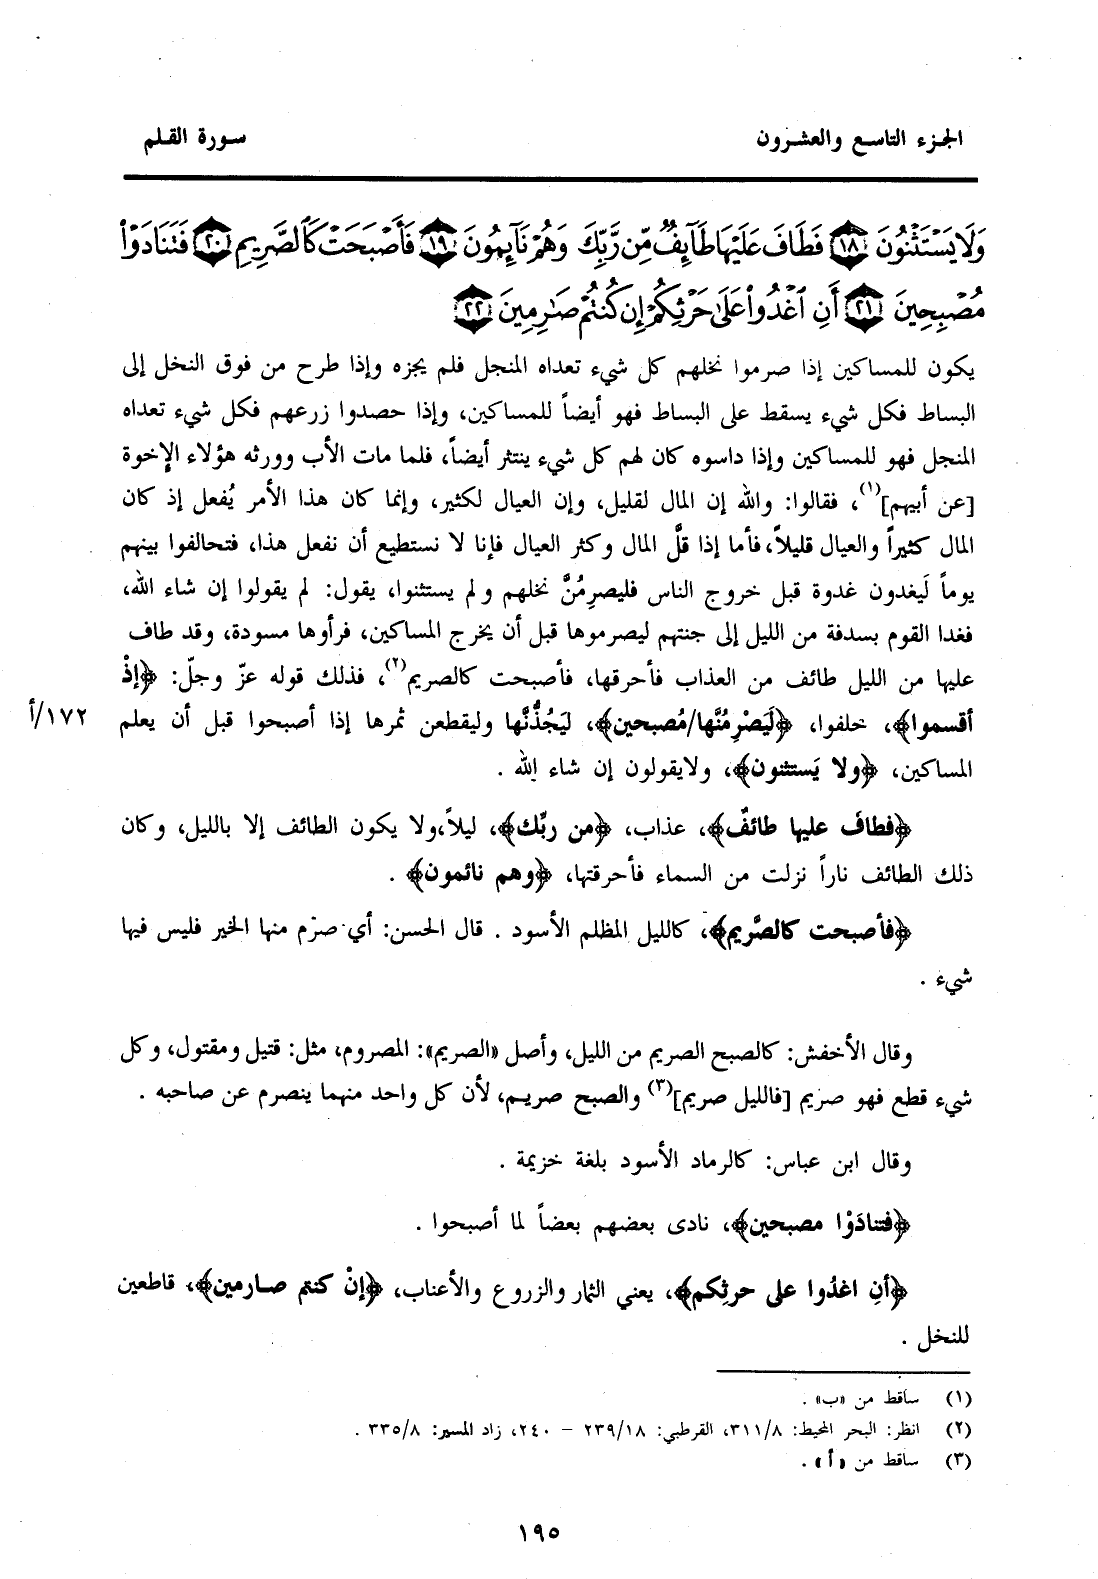 الجزء التاسع والعشرون
سورة القلم
وَلَا يَسْتَثْنُونَ ١٨ فَطَافَ عَلَيْهَا طَآئِفٌ مِّن رَّبِّكَ وَهُمْ نَآئِمُونَ ١٩ فَأَصْبَحَتْ كَالصَّرِيمِ ٢٠ فَتَنَادَوْا
مُصْبِحِينَ ٢١ أَنِ اغْدُوا عَلَىٰ حَرْثِكُمْ إِن كُنتُمْ صَارِمِينَ ٢٢
يكون للمساكين إذا صرموا نخلهم كل شيء تعداه المنجل فلم يجزه وإذا طرح من فوق النخل إلى
البساط فكل شيء يسقط على البساط فهو أيضاً للمساكين، وإذا حصدوا زرعهم فكل شيء تعداه
المنجل فهو للمساكين وإذا داسوه كان لهم كل شيء ينتثر أيضاً، فلما مات الأب وورثه هؤلاء الإخوة
[عن أبيهم](١)، فقالوا: والله إن المال لقليل، وإن العيال لكثير، وإنما كان هذا الأمر يُفعل إذ كان
المال كثيراً والعيال قليلاً، فأما إذا قلَّ المال وكثر العيال فإنا لا نستطيع أن نفعل هذا، فتحالفوا بينهم
يوماً لَيغدون غدوة قبل خروج الناس فليصرِمُنَّ نخلهم ولم يستثنوا، يقول: لم يقولوا إن شاء الله،
فغدا القوم بسدفة من الليل إلى جنتهم ليصرموها قبل أن يخرج المساكين، فرأوها مسودة، وقد طاف
عليها من الليل طائف من العذاب فأحرقها، فأصبحت كالصريم(٢)، فذلك قوله عزّ وجلّ: ﴿إذْ
أقسموا﴾، حلفوا، ﴿لَيَصْرِمُنَّها/مُصبحين﴾، ليَجُذُّنَّها وليقطعن ثمرها إذا أصبحوا قبل أن يعلم
١٧٢/أ
المساكين، ﴿ولا يَستثنون﴾، ولايقولون إن شاء الله .
﴿فطافَ عليها طائفٌ﴾، عذاب، ﴿من ربِّك﴾، ليلاً،ولا يكون الطائف إلا بالليل، وكان
ذلك الطائف ناراً نزلت من السماء فأحرقتها، ﴿وهم نائمون﴾ .
﴿فأصبحت كالصَّريم﴾، كالليل المظلم الأسود . قال الحسن: أي صرّم منها الخير فليس فيها
شيء .
وقال الأخفش: كالصبح الصريم من الليل، وأصل «الصريم»: المصروم، مثل: قتيل ومقتول، وكل
شيء قطع فهو صريم [فالليل صريم](٣) والصبح صريم، لأن كل واحد منهما ينصرم عن صاحبه .
وقال ابن عباس: كالرماد الأسود بلغة خزيمة .
﴿فتنادَوْا مصبحين﴾، نادى بعضهم بعضاً لما أصبحوا .
﴿أنِ اغدُوا على حرثِكم﴾، يعني الثمار والزروع والأعناب، ﴿إنْ كنتم صارمين﴾، قاطعين
للنخل .
(١) ساقط من «ب» .
(٢) انظر: البحر المحيط: ٣١١/٨، القرطبي: ٢٣٩/١٨ – ٢٤٠، زاد المسير: ٣٣٥/٨ .
(٣) ساقط من «أ» .
١٩٥